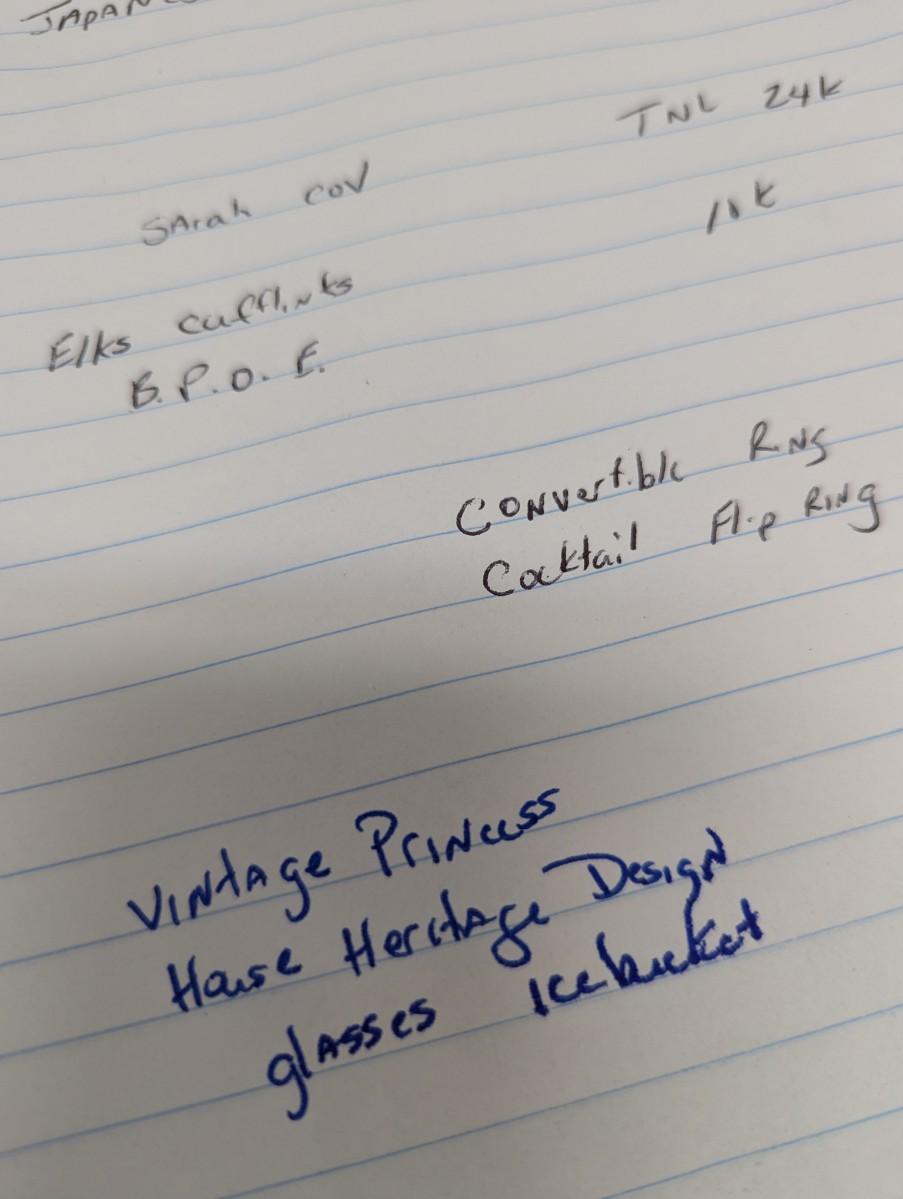 JAPAN
TNL 24K
Sarah Cov
Elks cufflinks
B.P.O.E.
Convertible Ring
Cocktail Flip Ring
Vintage Princess
House Heritage Design
glasses Icebucket